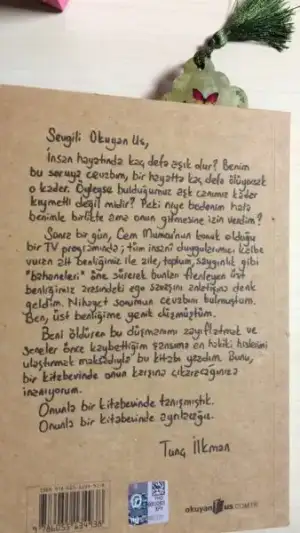 Sevgili Okuyan Us,
İnsan hayatında kaç defa aşık olur? Benim
bu soruya cevabım, bir hayatta kaç defa ölüyorsak
o kadar. Öyleyse bulduğumuz aşk canımız kadar
kıymetli değil midir? Peki niye bedenim hala
benimle birlikte ama onun gitmesine izin verdim?
Sonra bir gün, Cem Mumcu'nun konuk olduğu
bir TV programında; tüm insani duygularımızı kalbe
vuran alt benliğimiz ile aile, toplum, saygınlık gibi
"bahaneleri" öne sürerek bunları frenleyen üst
benliğimiz arasındaki ego savaşını anlatışına denk
geldim. Nihayet sorumun cevabını bulmuştum.
Ben, üst benliğime yenik düşmüştüm.
Beni öldüren bu düşmanımı zayıflatmak ve
seneler önce kaybettiğim şansıma en hakiki hislerimi
ulaştırmak maksadıyla bu kitabı yazdım. Bunu,
bir kitabevinde onun karşına çıkaracağınıza
inanıyorum.
Onunla bir kitabevinde tanışmıştık.
Onunla bir kitabevinde ayrılacağız.
Tunç İlkman
okuyan us.com.tr